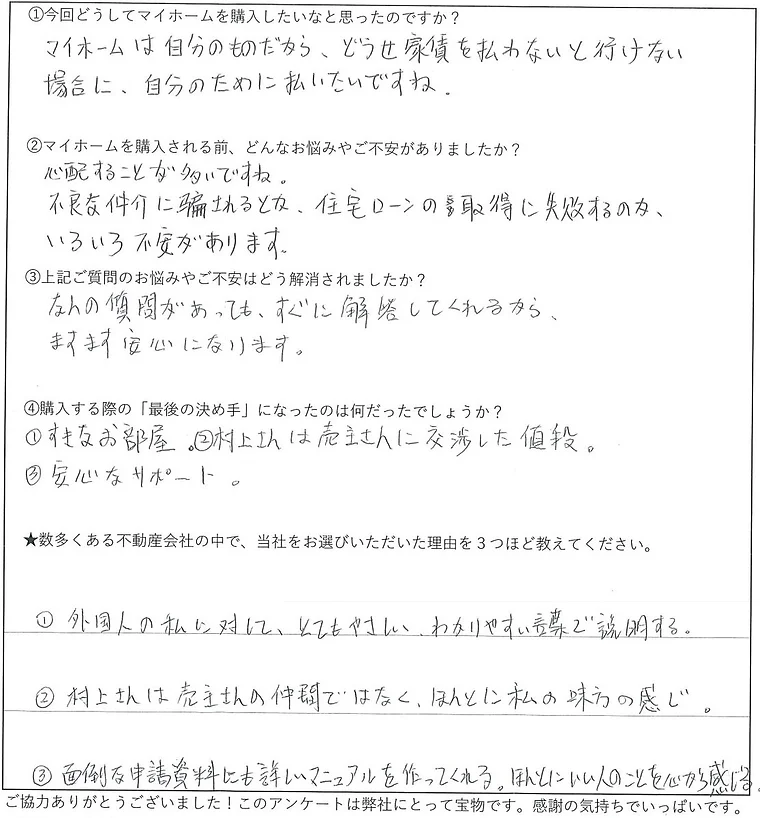 ①今回どうしてマイホームを購入したいなと思ったのですか？
マイホームは自分のものだから、どうせ家債を払わないと行けない
場合に、自分のために払いたいですね。
②マイホームを購入される前、どんなお悩みやご不安がありましたか？
心配することが多いですね。
不良な仲介に騙されるとか、住宅ローンの取得に失敗するのか、
いろいろ不安があります。
③上記ご質問のお悩みやご不安はどう解消されましたか？
なんの質問があっても、すぐに解答してくれるから、
ますます安心になります。
④購入する際の「最後の決め手」になったのは何だったでしょうか？
①すきなお部屋。②村上さんは売主さんに交渉した値段。
③安心なサポート。
★数多くある不動産会社の中で、当社をお選びいただいた理由を３つほど教えてください。
①外国人の私に対して、とてもやさしい、わかりやすい言葉で説明する。
②村上さんは売主さんの仲間ではなく、ほんとに私の味方の感じ。
③面倒な申請資料にも詳しいマニュアルを作ってくれる。ほんとにいい人のことを心から感じる。
ご協力ありがとうございました！このアンケートは弊社にとって宝物です。感謝の気持ちでいっぱいです。